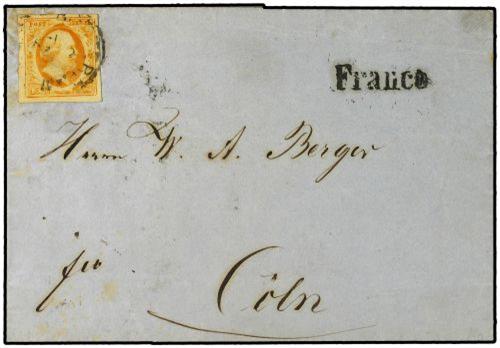 Franco
Herrn W. A. Berger
fco
Cöln